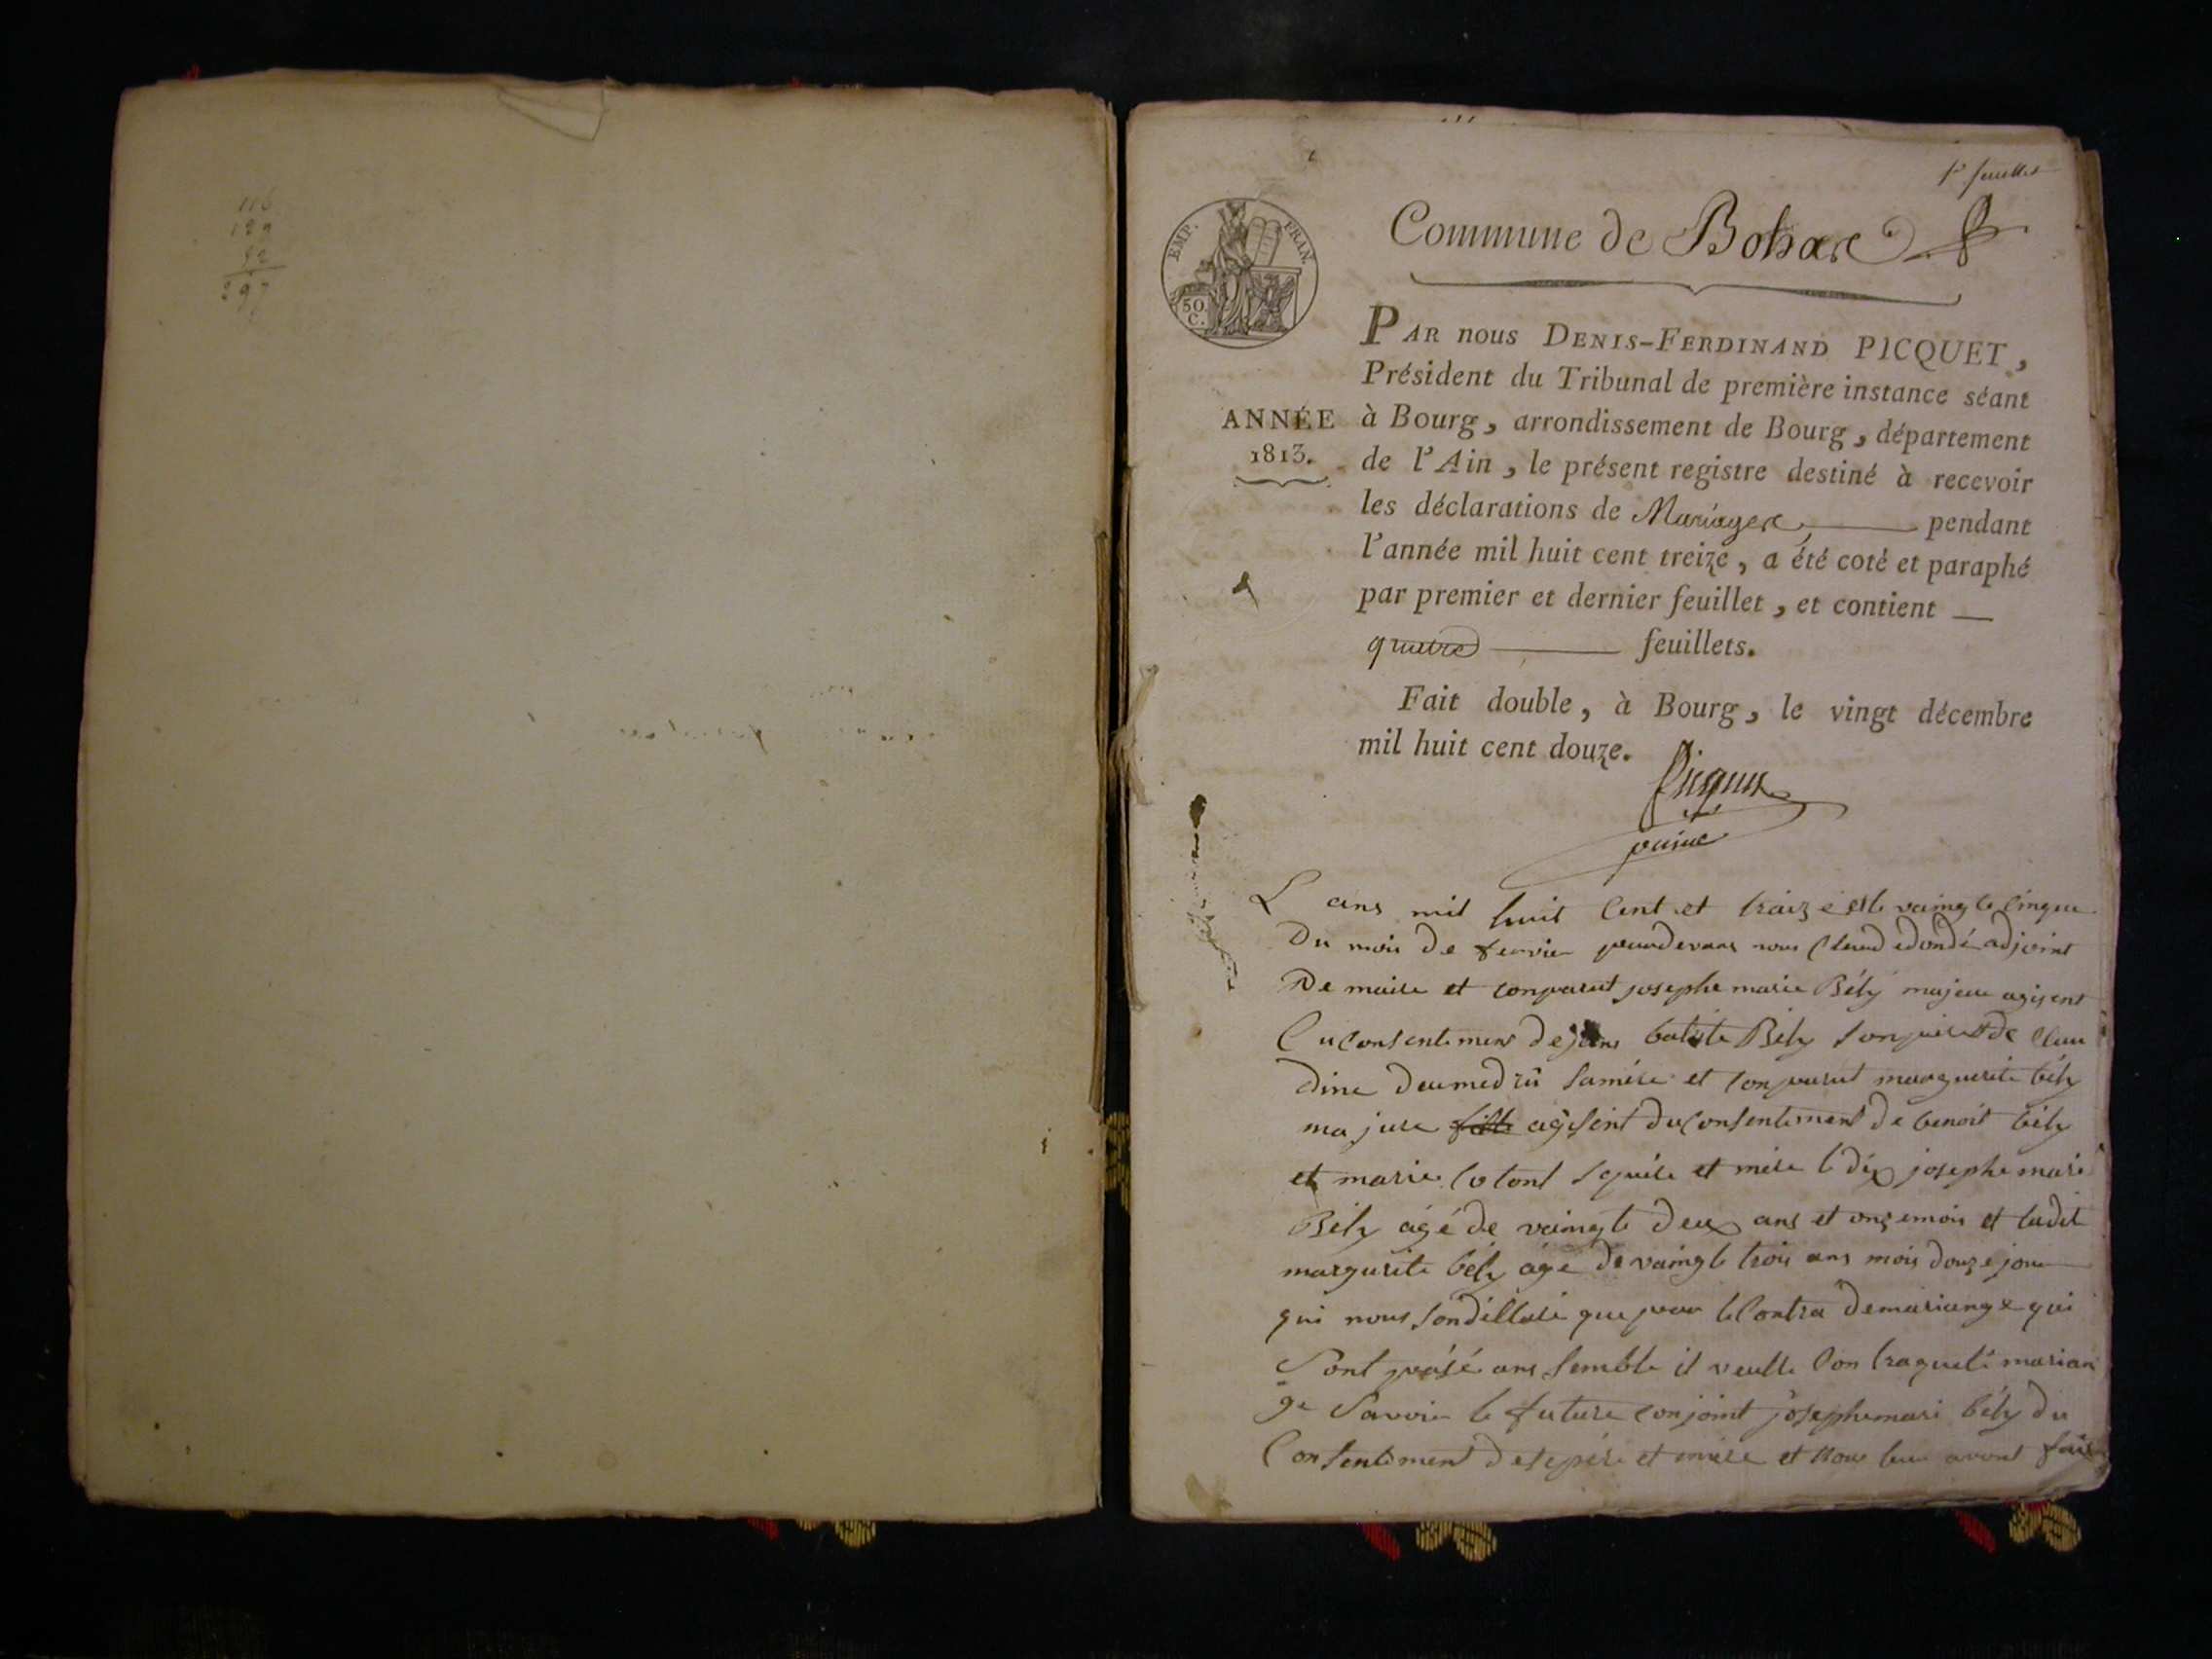 116
129
52
297
1er feuillet
Commune de Bohas
EMP. FRAN.
50 C.
PAR nous DENIS-FERDINAND PICQUET,
Président du Tribunal de première instance séant
ANNÉE à Bourg, arrondissement de Bourg, département
1813. de l'Ain, le présent registre destiné à recevoir
les déclarations de Mariages pendant
l'année mil huit cent treize, a été coté et paraphé
par premier et dernier feuillet, et contient —
quatre feuillets.
Fait double, à Bourg, le vingt décembre
mil huit cent douze.
Picquet
L ans mil huit Cent et traize et le vaingte cinque
Du mois De fevrier pardevans nous adjoint
De maire et conparut josephe marie Bély majeur agisent
Du consentemens de batiste Bely son pere et de Clau
dine samére et conparut marguerite bély
majure agisent du consentement de benoit bély
et marie et mére le dix josephe mari
Bély agé de vaingte deux ans et onze mois et ladit
margurite bély agé de vaingte trois ans mois douze jour
qui nous que pour le Contra de mariange qui
Sont pasé ans semble il veulle marian
ge Savoir le future conjoint josephe mari bély du
Consentement de se pére et mére et nous leur avont fait